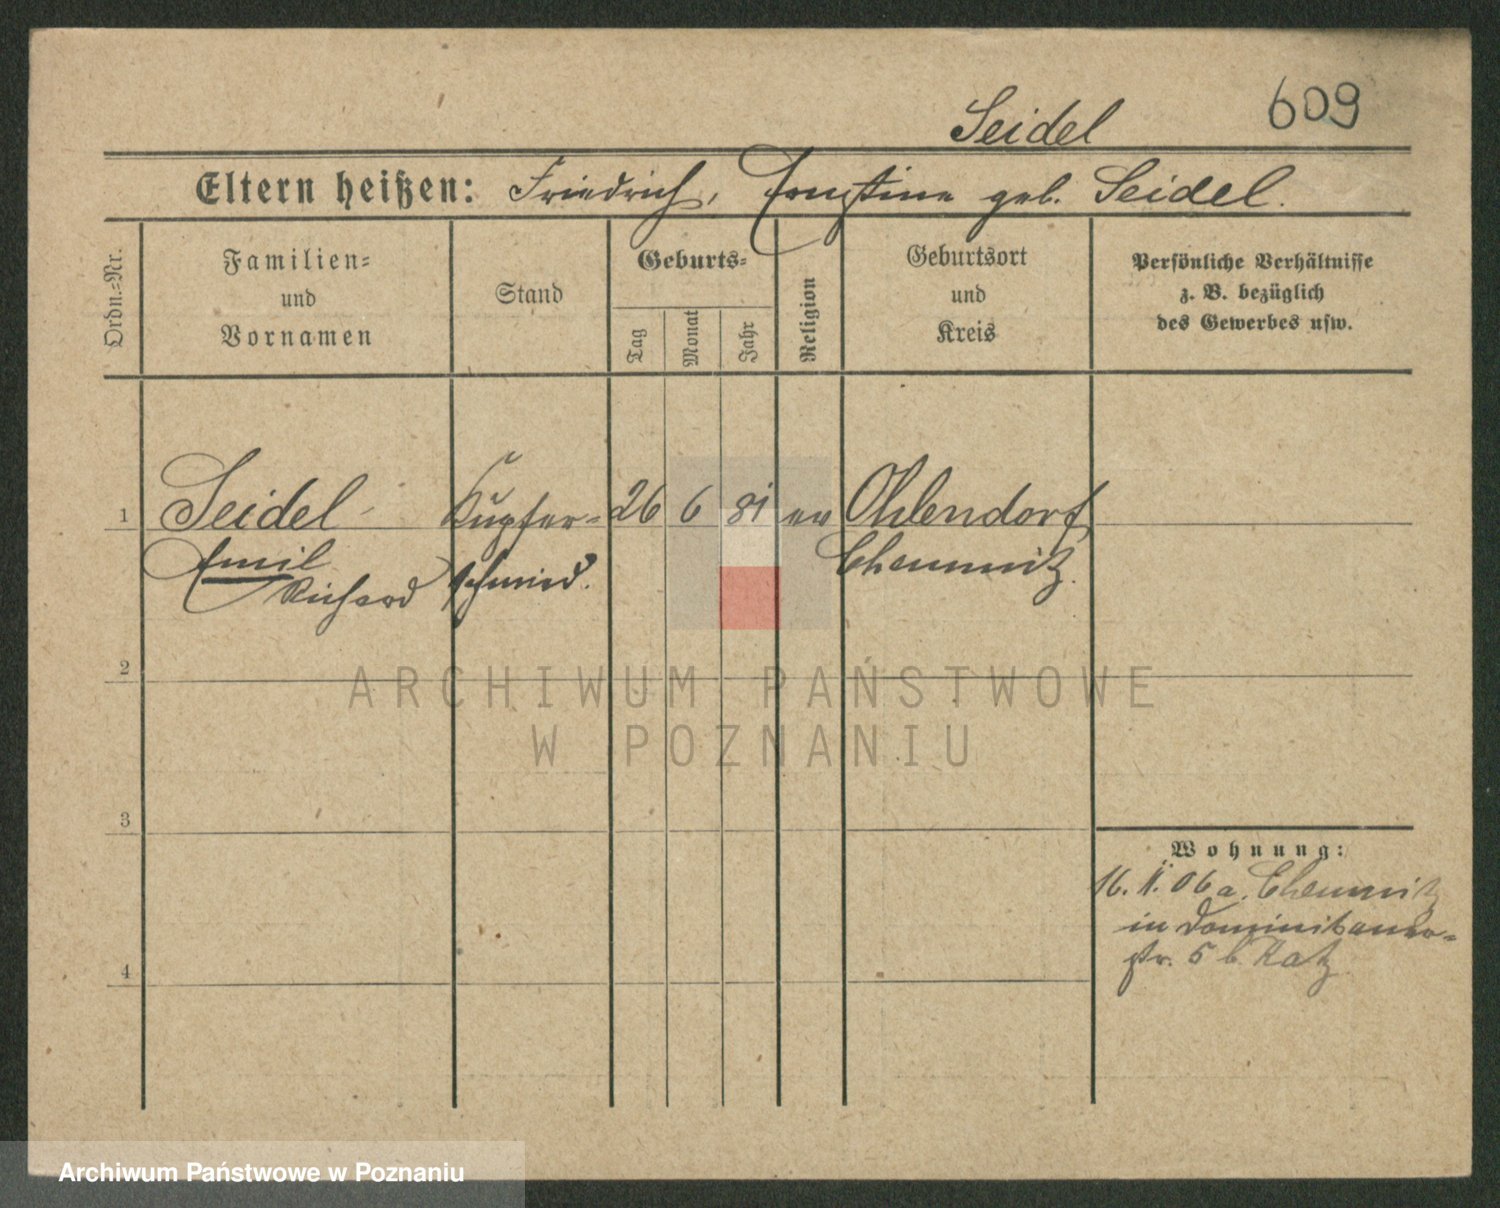 Seidel 609
Eltern heißen: Friedrich, Ernstine geb. Seidel.
Ordn.-Nr.
Familien-
und
Vornamen
Stand
Geburts-
Tag
Monat
Jahr
Religion
Geburtsort
und
Kreis
Persönliche Verhältnisse
z. B. bezüglich
des Gewerbes usw.
1 Seidel Kupfer- 26 6 81 ev Ohlendorf
Emil schmied. Chemnitz.
Richard
2
3
4
Wohnung:
16. II. 06 a. Chemnitz
in Dominikaner-
str. 5 b. Katz
ARCHIWUM PAŃSTWOWE
W POZNANIU
Archiwum Państwowe w Poznaniu